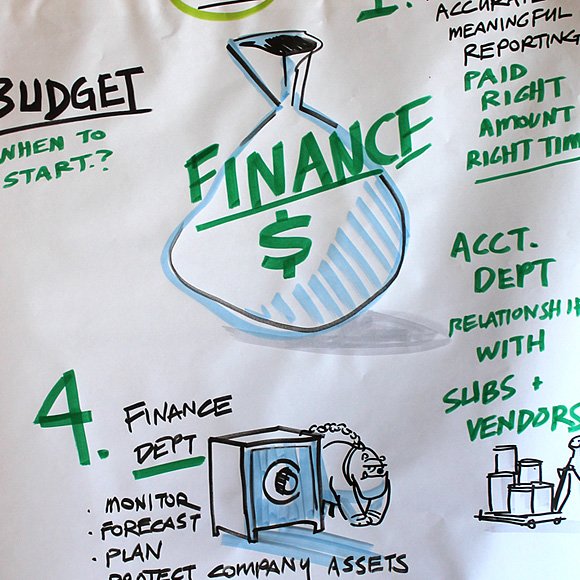 BUDGET
WHEN TO
START?
FINANCE
$
1.
ACCURATE
MEANINGFUL
REPORTING
PAID
RIGHT
AMOUNT
RIGHT TIME
ACCT.
DEPT
RELATIONSHIP
WITH
SUBS +
VENDORS
4. FINANCE
DEPT
· MONITOR
· FORECAST
· PLAN
· PROTECT COMPANY ASSETS